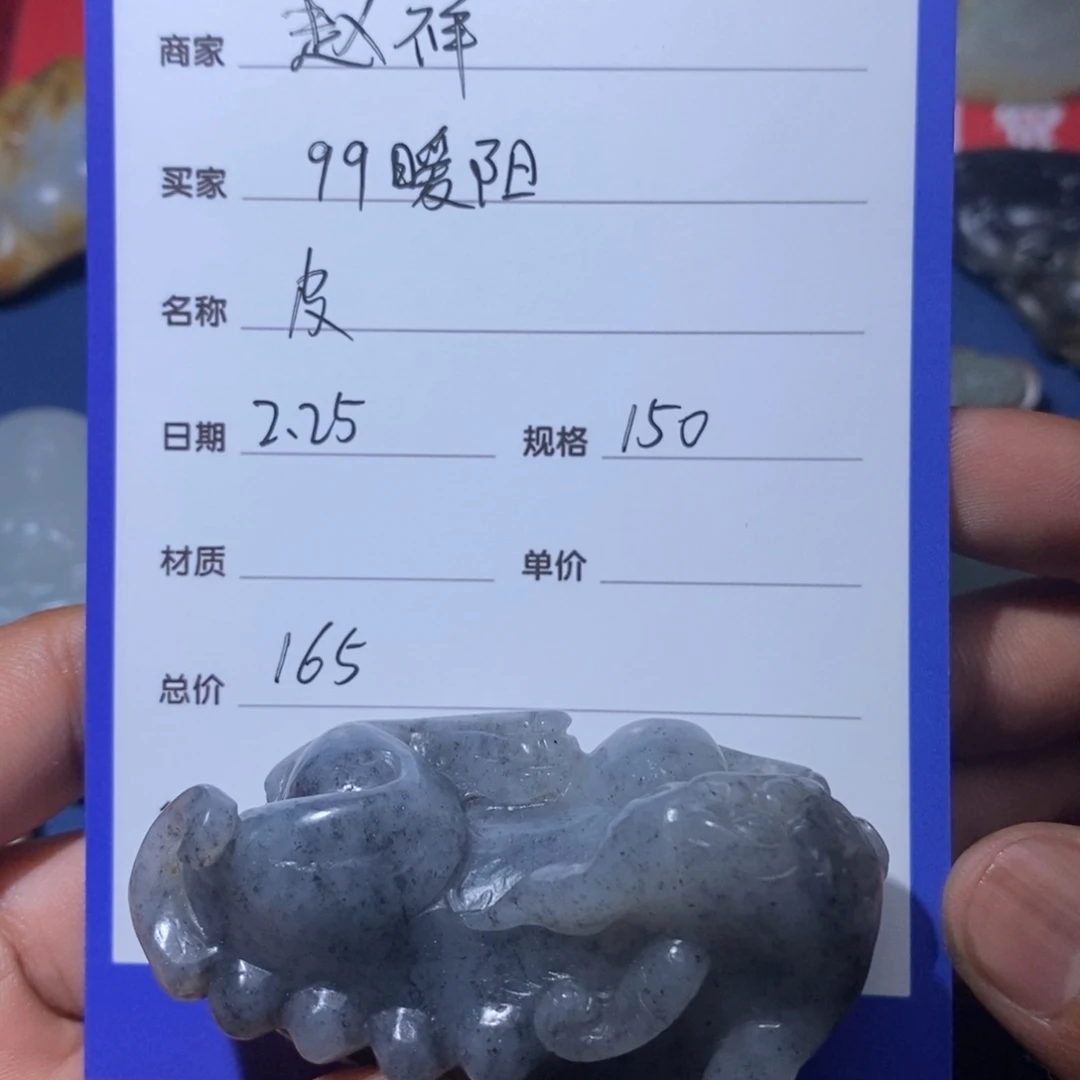 商家 赵祥
买家 99暖阳
名称 皮
日期 2.25 规格 150
材质 单价
总价 165